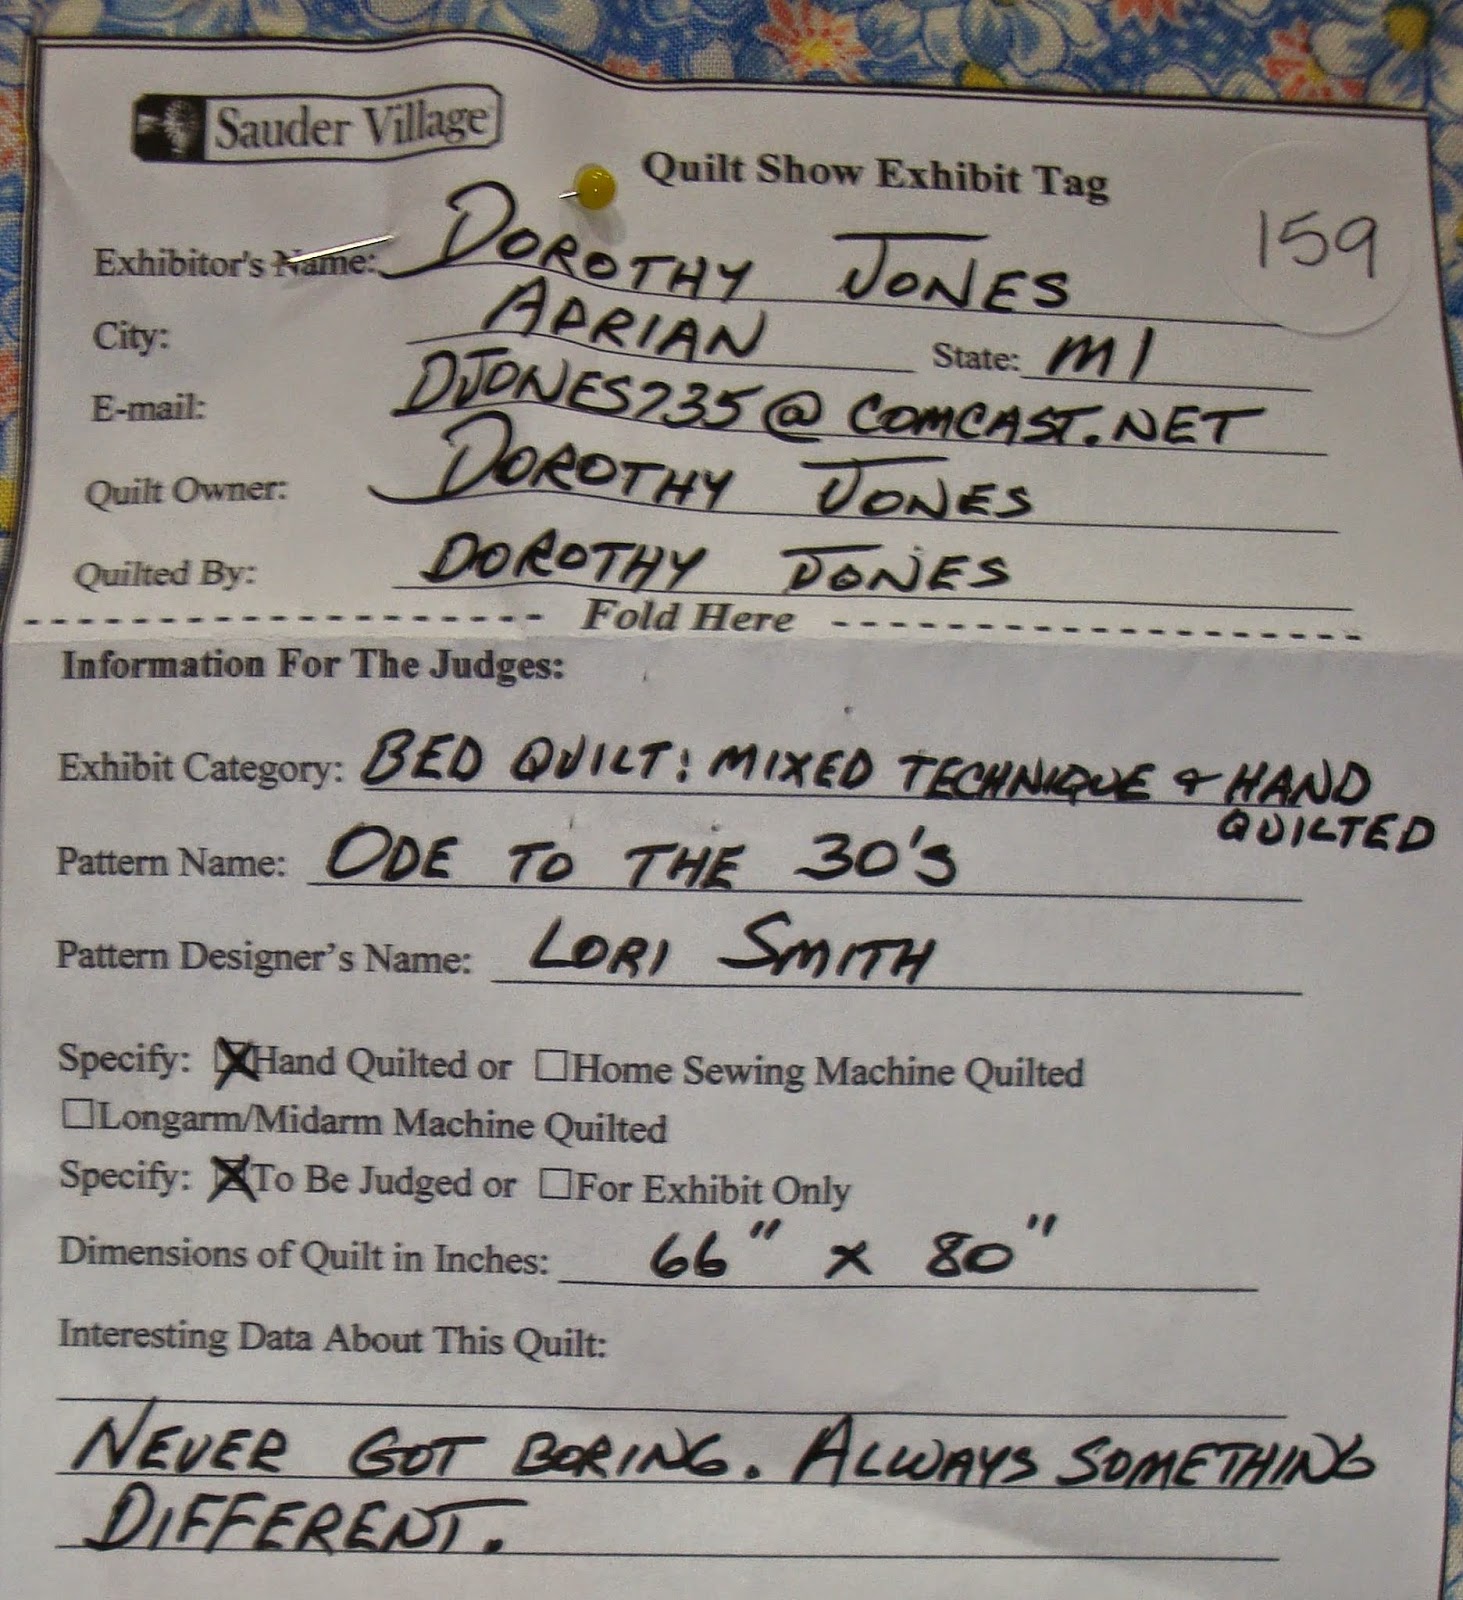 Sauder Village
Quilt Show Exhibit Tag
159
Exhibitor's Name: DOROTHY JONES
City: ADRIAN State: MI
E-mail: DJONES235@COMCAST.NET
Quilt Owner: DOROTHY JONES
Quilted By: DOROTHY JONES
Fold Here
Information For The Judges:
Exhibit Category: BED QUILT: MIXED TECHNIQUE & HAND
QUILTED
Pattern Name: ODE TO THE 30'S
Pattern Designer's Name: LORI SMITH
Specify: ☒Hand Quilted or ☐Home Sewing Machine Quilted
☐Longarm/Midarm Machine Quilted
Specify: ☒To Be Judged or ☐For Exhibit Only
Dimensions of Quilt in Inches: 66" x 80"
Interesting Data About This Quilt:
NEVER GOT BORING. ALWAYS SOMETHING
DIFFERENT.